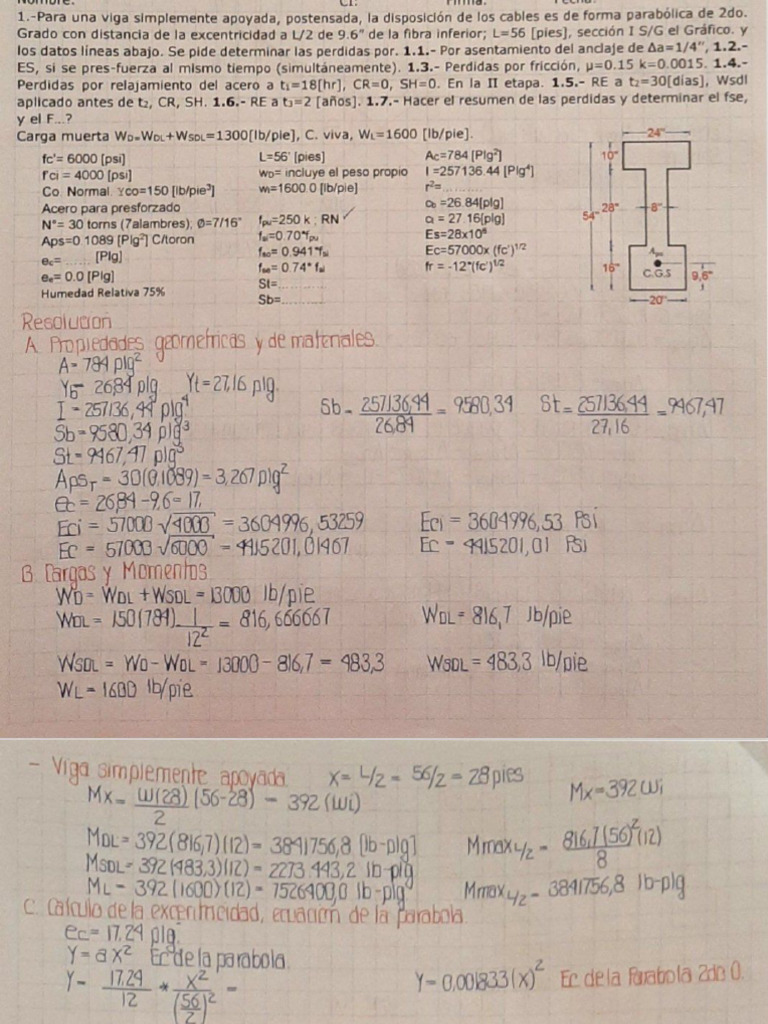 1.-Para una viga simplemente apoyada, postensada, la disposición de los cables es de forma parabólica de 2do.
Grado con distancia de la excentricidad a L/2 de 9.6" de la fibra inferior; L=56 [pies], sección I S/G el Gráfico. y
los datos líneas abajo. Se pide determinar las perdidas por. 1.1.- Por asentamiento del anclaje de Δa=1/4", 1.2.-
ES, si se pres-fuerza al mismo tiempo (simultáneamente). 1.3.- Perdidas por fricción, μ=0.15 k=0.0015. 1.4.-
Perdidas por relajamiento del acero a t₁=18[hr], CR=0, SH=0. En la II etapa. 1.5.- RE a t₂=30[días], Wsdl
aplicado antes de t₂, CR, SH. 1.6.- RE a t₃=2 [años]. 1.7.- Hacer el resumen de las perdidas y determinar el fse,
y el F...?
Carga muerta WD=WDL+WSDL=1300[lb/pie], C. viva, WL=1600 [lb/pie].
fc'= 6000 [psi]
f'ci = 4000 [psi]
Co. Normal. γco=150 [lb/pie³]
Acero para presforzado
N°= 30 torns (7alambres); Ø=7/16"
Aps=0.1089 [Plg²] C/toron
ec=...... [Plg]
ee= 0.0 [Plg]
Humedad Relativa 75%
L=56' [pies]
wD= incluye el peso propio
wl=1600.0 [lb/pie]
fpu=250 k ; RN ✓
fsi=0.70*fpu
fso= 0.941*fsi
fse= 0.74* fsi
St=............
Sb=..........
Ac=784 [Plg²]
I =257136.44 [Plg⁴]
r²=..........
cb =26.84[plg]
ct = 27.16[plg]
Es=28x10⁶
Ec=57000x (fc')^1/2
fr = -12*(fc')^1/2
24"
10"
54"
28"
8"
16"
Aps
C.G.S
9,6"
20"
Resolucion
A. Propiedades geometricas y de materiales.
A= 784 plg²
Yb= 26,84 plg Yt=27,16 plg.
I = 257136,44 plg⁴
Sb= 257136,44/26,84 = 9580,34 St= 257136,44/27,16 =9467,47
Sb=9580,34 plg³
St=9467,47 plg³
ApsT = 30(0,1089)=3,267plg²
ec = 26,84-9,6= 17,
Eci = 57000 √4000 = 3604996,53259 Eci = 3604996,53 Psi
Ec = 57000 √6000 = 4415201,01467 Ec = 4415201,01 Psi
B. Cargas y Momentos
WD= WDL +WSDL = 13000 lb/pie
WDL = 150(784) 1/12² = 816,666667 WDL = 816,7 lb/pie
WSDL = WD-WDL = 13000-816,7 = 483,3 WSDL = 483,3 lb/pie
WL = 1600 lb/pie
- Viga simplemente apoyada. X= L/2 = 56/2 = 28 pies
Mx= W(28)/2 (56-28) = 392 (Wi) Mx=392 Wi
MDL= 392(816,7)(12)= 3841756,8 [lb-plg] Mmax L/2 = 816,7(56)²(12)/8
MSDL= 392(483,3)(12)= 2273.443,2 lb-plg
ML = 392 (1600)(12)= 7526400,0 lb-plg Mmax L/2 = 3841756,8 lb-plg
C. Cálculo de la excentricidad, ecuación de la parabola.
ec= 17.24 plg.
Y= a x² Ec de la parabola.
Y= 17.24/12 * x²/(56/2)² = Y=0,001833(x)² Ec. de la Parabola 2do G.